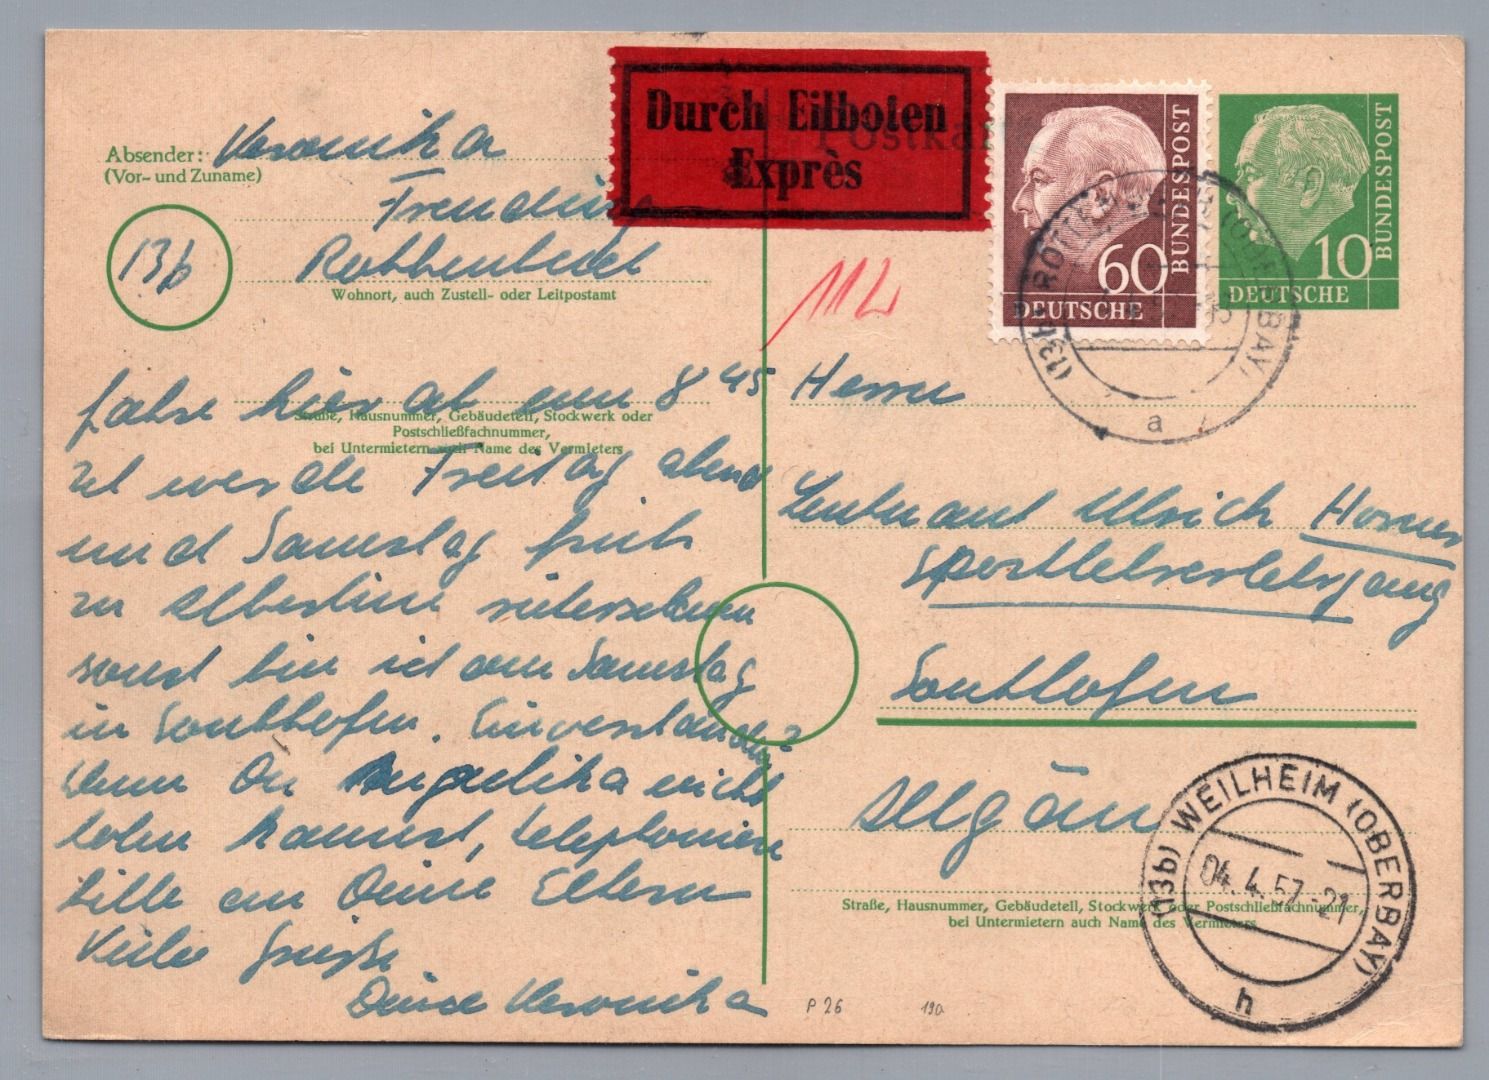 Durch Eilboten
Exprès
Postkar
Absender: Veronika
(Vor- und Zuname)
13b
Rottenbuch
Wohnort, auch Zustell- oder Leitpostamt
Straße, Hausnummer, Gebäudeteil, Stockwerk oder
Postschließfachnummer,
bei Untermietern auch Name des Vermieters
fahre hier ab um 8 45
Ich werde Freitag abend
und Samstag früh
zu
sonst bin ich am Samstag
in Sonthofen. Einverstanden?
Wenn Du Angelika nicht
holen kannst, telephoniere
bitte an Deine Eltern
Viele Grüße
Deine Veronika
60
DEUTSCHE
BUNDESPOST
10
DEUTSCHE
BUNDESPOST
(13b) ROTTENBUCH (OBERBAY)
a
Herrn
Leutnant Ulrich
Sportlehrerlehrgang
Sonthofen
Allgäu
Straße, Hausnummer, Gebäudeteil, Stockwerk oder Postschließfachnummer,
bei Untermietern auch Name des Vermieters
(13b) WEILHEIM (OBERBAY)
04.4.57.-21
h
P 26
19a